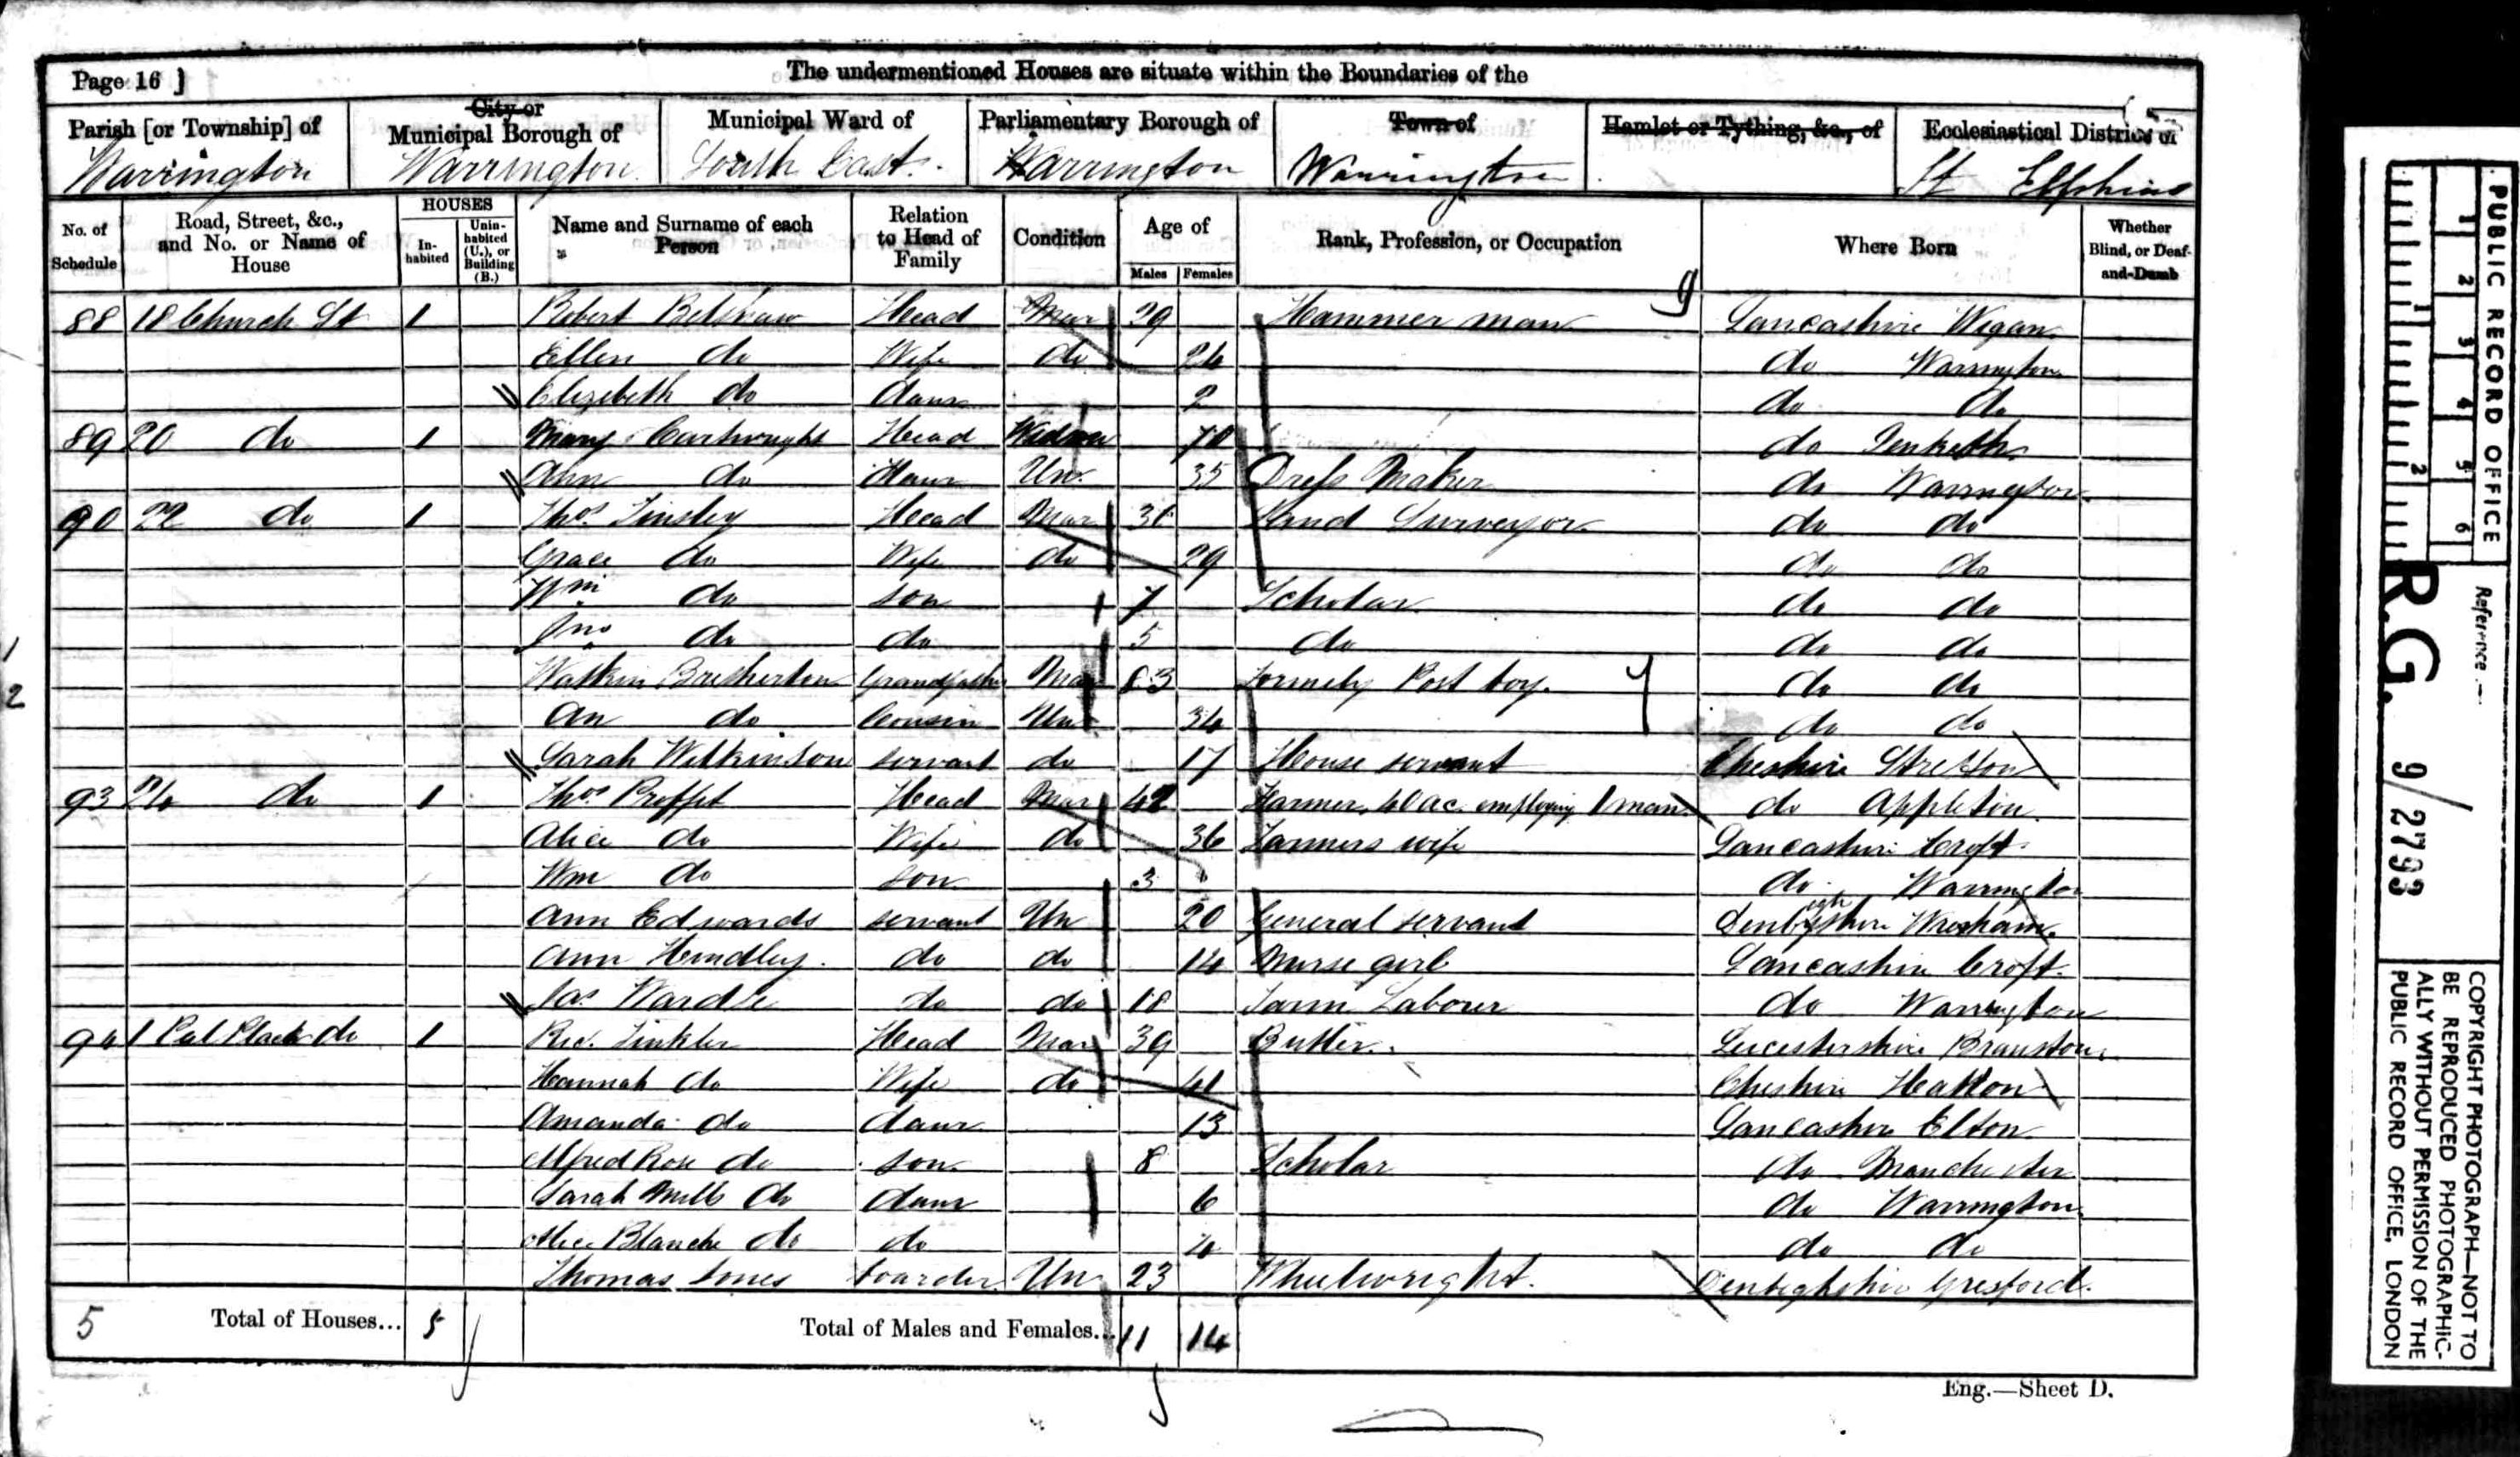 Page 16 ]
The undermentioned Houses are situate within the Boundaries of the
Parish [or Township] of City or Municipal Borough of Municipal Ward of Parliamentary Borough of Town of Hamlet or Tything, &c., of Ecclesiastical District of
Warrington Warrington South East Warrington Warrington St Elfphins
No. of Schedule Road, Street, &c., and No. or Name of House HOUSES In-habited Unin-habited (U.), or Building (B.) Name and Surname of each Person Relation to Head of Family Condition Age of Males Females Rank, Profession, or Occupation Where Born Whether Blind, or Deaf-and-Dumb
88 18 Church St 1 Robert Belshaw Head Mar 39 Hammer man Lancashire Wigan
Ellen do Wife do 24 do Warrington
Elizebeth do daur 2 do do
89 20 do 1 Mary Cartwright Head Widow 70 do Penketh
Ann do daur Un 35 Dress Maker do Warrington
90 22 do 1 Thos Tinsley Head Mar Land Surveyor do do
Grace do Wife do 29 do do
Wm do son 7 Scholar do do
Jno do do 5 do do do
Watkin Bretherton Grandfather Mar 83 Formely Post boy do do
An do Cousin Un 34 do do
Sarah Wilkinson servant do 17 House servant Cheshire Stretton
93 24 do 1 Thos Proffit Head Mar 42 Farmer ac. employing 1 man do Appleton
Alice do Wife do 36 Farmers wife Lancashire Croft
Wm do son 3 do Warrington
Ann Edwards servant Un 20 General servant Denbighshire Wrexham
Ann Hindley do do 14 Nurse girl Lancashire Croft
Jas Wardle do do 18 Farm Labourer do Warrington
94 1 do 1 Ric. Tinkler Head Mar 39 Butler Leicestershire Branston
Hannah do Wife do 41 Cheshire Hatton
Amanda do daur 13 Lancashire Elton
Alfred Rose do son 8 Scholar do Manchester
Sarah Mills do daur 6 do Warrington
Alice Blanche do do 4 do do
Thomas Jones boarder Un 23 Wheelwright Denbighshire Gresford
5 Total of Houses... 5 Total of Males and Females... 11 14
Eng.—Sheet D.
1
2
PUBLIC RECORD OFFICE
1 2 3 4 5 6
1 2
Reference :—
R.G. 9/2793
COPYRIGHT PHOTOGRAPH—NOT TO
BE REPRODUCED PHOTOGRAPHIC-
ALLY WITHOUT PERMISSION OF THE
PUBLIC RECORD OFFICE, LONDON